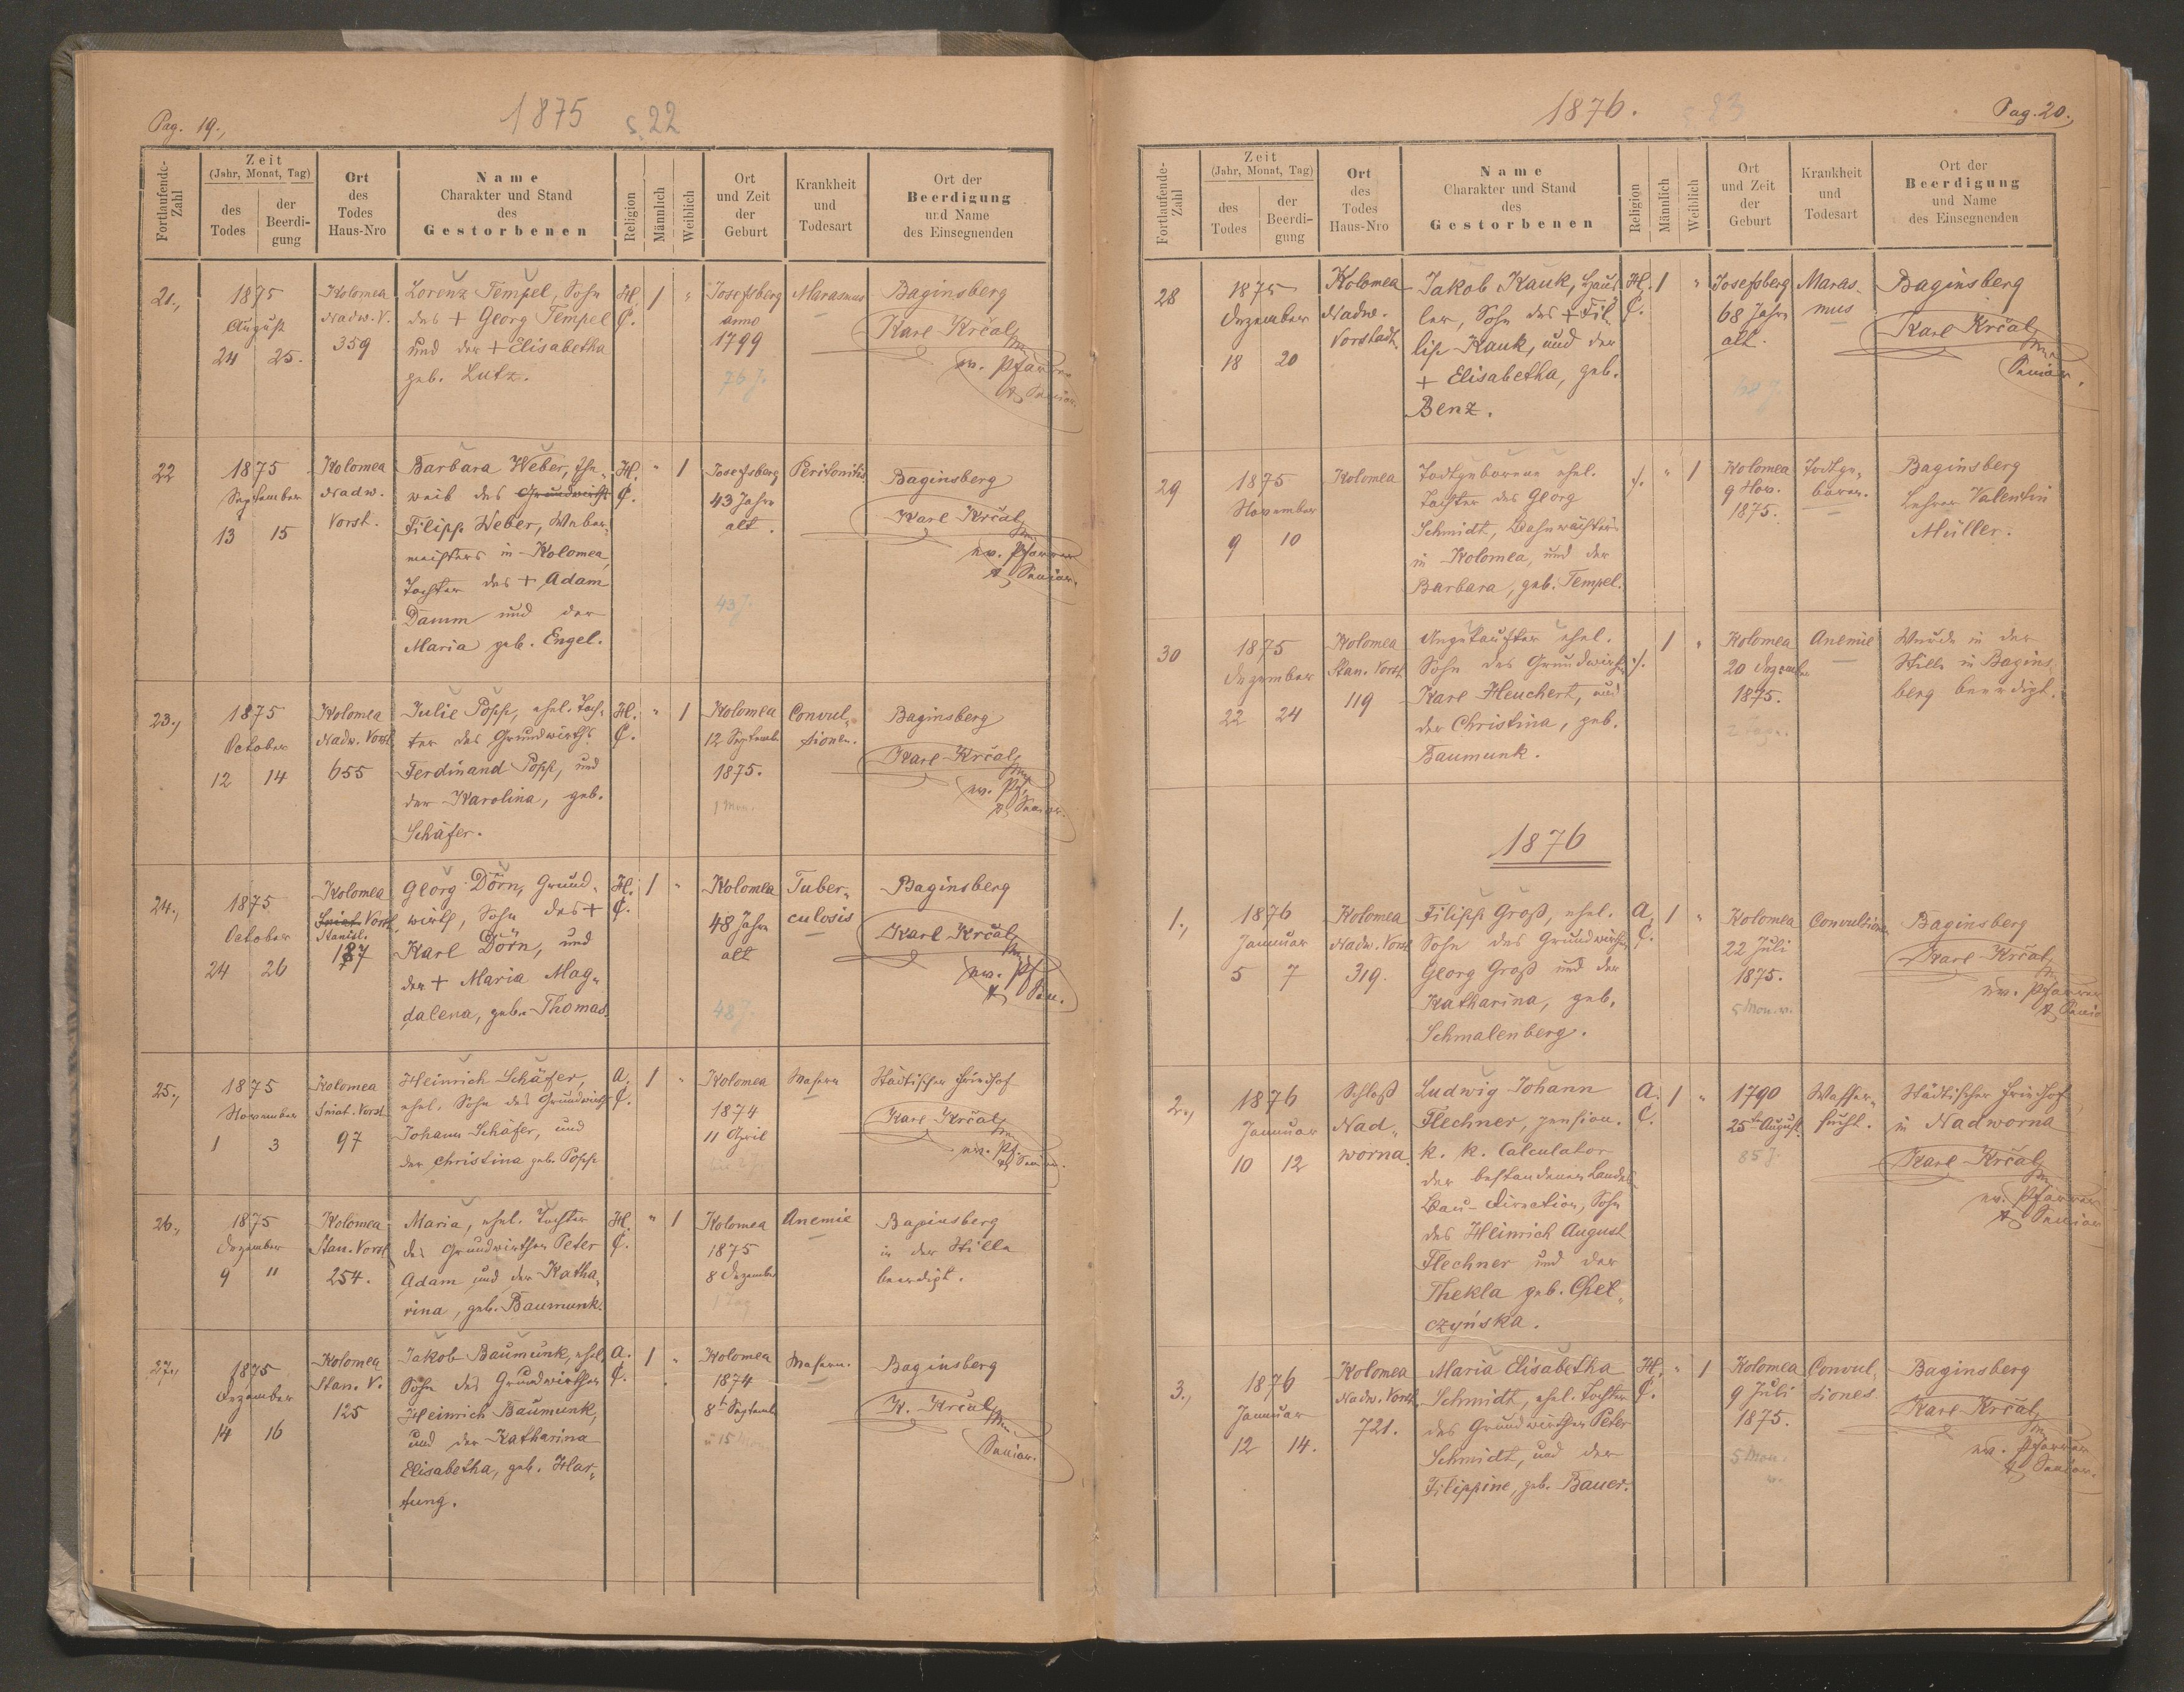 Pag. 19.,
1875
s. 22
Fortlaufende-Zahl
Zeit
(Jahr, Monat, Tag)
des Todes
der Beerdi-gung
Ort
des
Todes
Haus-Nro
Name
Charakter und Stand
des
Gestorbenen
Religion
Männlich
Weiblich
Ort
und Zeit
der
Geburt
Krankheit
und
Todesart
Ort der
Beerdigung
und Name
des Einsegnenden
21.,
1875
August
24 25.
Kolomea
Nadw. V.
359
Lorenz Tempel, Sohn
des + Georg Tempel
und der + Elisabetha
geb. Lutz.
H.
C.
1 "
Josefsberg
anno
1799
76 J.
Marasmus
Baginsberg
Karl Krčal
ev. Pfarrer
& Senior.
22
1875
September
13 15
Kolomea
Nadw.
Vorst.
Barbara Weber, Ehe-
weib des Grundwirth
Filipp Weber, Weber-
meisters in Kolomea,
Tochter des + Adam
Damm und der
Maria geb. Engel.
H.
C.
" 1
Josefsberg
43 Jahre
alt.
43 J.
Peritonitis
Baginsberg
Karl Krčal
ev. Pfarrer
& Senior.
23.,
1875
October
12 14
Kolomea
Nadw. Vorst.
655
Julie Popp, ehel. Toch-
ter des Grundwirths
Ferdinand Popp, und
der Karolina, geb.
Schäfer.
H.
C.
" 1
Kolomea
12 September
1875.
1 Mon.
Convul-
sionen.
Baginsberg
Karl Krčal
ev. Pf.
& Senior.
24.,
1875
October
24 26
Kolomea
Sniat. Vorst.
Stanisl.
187
Georg Dörn, Grund-
wirth, Sohn des +
Karl Dörn, und
der + Maria Mag-
dalena, geb. Thomas.
H.
C.
1 "
Kolomea
48 Jahre
alt
48 J.
Tuber-
culosis
Baginsberg
Karl Krčal
ev. Pf
& Sen.
25.,
1875
November
1 3
Kolomea
Sniat. Vorst.
97
Heinrich Schäfer,
ehel. Sohn des Grundwirths
Johann Schäfer, und
der Christina geb. Popp
A.
C.
1 "
Kolomea
1874
11 April
Masern
Städtischer Friedhof
Karl Krčal
ev. Pf.
& Senior.
26.,
1875
Dezember
9 11
Kolomea
Stan. Vorst.
254.
Maria, ehel. Tochter
des Grundwirthen Peter
Adam und der Katha-
rina, geb. Baumunk.
H.
C.
" 1
Kolomea
1875
8 Dezember
1 Tag
Anemie
Baginsberg
in der Stille
beerdigt.
27.,
1875
Dezember
14 16
Kolomea
Stan. V.
125
Jakob Baumunk, ehel.
Sohn des Grundwirthen
Heinrich Baumunk,
und der Katharina
Elisabetha, geb. Har-
tung.
A.
C.
1 "
Kolomea
1874
8t September
15 Mon.
Masern.
Baginsberg
K. Krčal
Senior.
1876.
s. 23
Pag. 20.,
Fortlaufende-Zahl
Zeit
(Jahr, Monat, Tag)
des Todes
der Beerdi-gung
Ort
des
Todes
Haus-Nro
Name
Charakter und Stand
des
Gestorbenen
Religion
Männlich
Weiblich
Ort
und Zeit
der
Geburt
Krankheit
und
Todesart
Ort der
Beerdigung
und Name
des Einsegnenden
28
1875
Dezember
18 20
Kolomea
Nadw.
Vorstadt.
Jakob Kauk, Häus-
ler, Sohn des + Fil-
lip Kauk, und der
+ Elisabetha, geb.
Benz.
H.
C.
1 "
Josefsberg
68 Jahre
alt.
68 J.
Maras-
mus
Baginsberg
Karl Krčal
Senior.
29
1875
November
9 10
Kolomea
Todtgeborene ehel.
Tochter des Georg
Schmidt, Bahnwächters
in Kolomea, und der
Barbara, geb. Tempel.
./.
" 1
Kolomea
9 Nov.
1875.
Todtge-
boren.
Baginsberg
Lehrer Valentin
Müller.
30
1875
Dezember
22 24
Kolomea
Stan. Vorst.
119
Ungetaufter ehel.
Sohn des Grundwirths
Karl Heuchert, und
der Christina, geb.
Baumunk.
./.
1 "
Kolomea
20 Dezember
1875.
2 Tage.
Anemie
Wurde in der
Stille in Bagins-
berg beerdigt.
1876
1.,
1876
Januar
5 7
Kolomea
Nadw. Vorst.
319.
Filipp Groß, ehel.
Sohn des Grundwirthen
Georg Groß und der
Katharina, geb.
Schmalenberg.
A.
C.
1 "
Kolomea
22 Juli
1875.
5 Mon. w.
Convulsionen
Baginsberg
Karl Krčal
ev. Pfarrer
& Senior
2.,
1876
Januar
10 12
Schloß
Nad-
worna.
Ludwig Johann
Flechner, pension.
k. k. Calculator
der bestandenen Landes-
Bau-Direction, Sohn
des Heinrich August
Flechner und der
Thekla geb. Chel-
czyńska.
A.
C.
1 "
1790
25ten August.
85 J.
Wasser-
sucht.
Städtischer Friedhof
in Nadworna
Karl Krčal
ev. Pfarrer
& Senior
3.,
1876
Januar
12 14.
Kolomea
Nadw. Vorst.
721.
Maria Elisabetha
Schmidt, ehel. Tochter
des Grundwirthen Peter
Schmidt, und der
Filippine, geb. Bauer.
H.
C.
" 1
Kolomea
9 Juli
1875.
5 Mon.
w.
Convul-
siones
Baginsberg
Karl Krčal
ev. Pfarrer
& Senior.